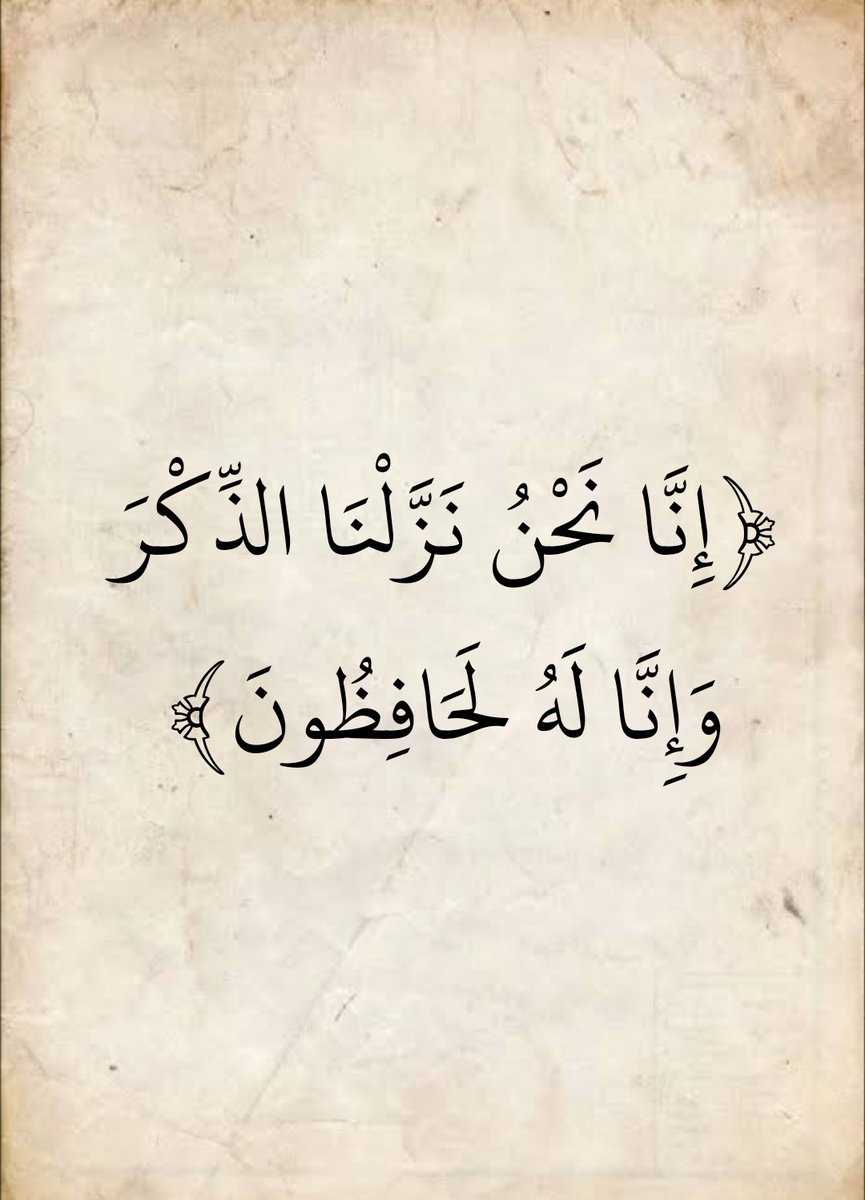 ﴿إِنَّا نَحْنُ نَزَّلْنَا الذِّكْرَ
وَإِنَّا لَهُ لَحَافِظُونَ﴾